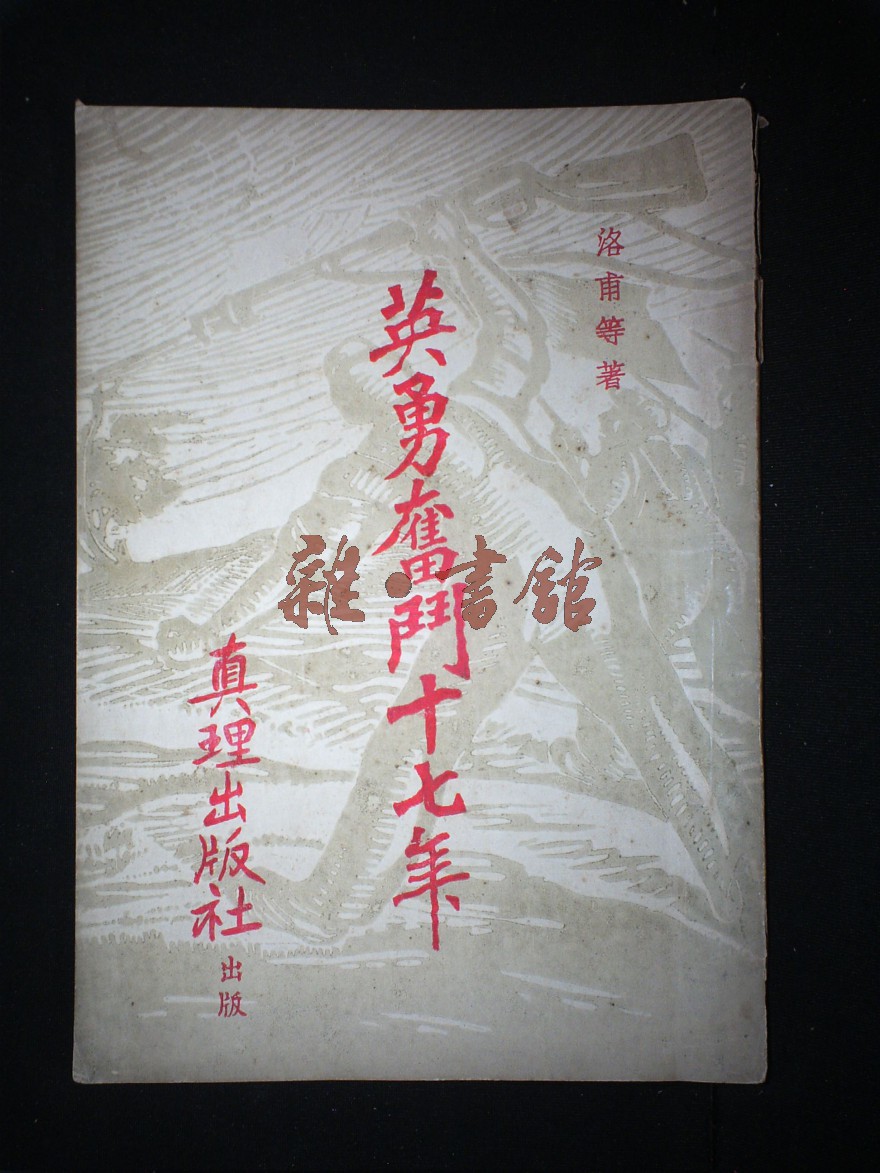 洛甫等著
英勇奮鬥十七年
真理出版社
出版
雜·書館